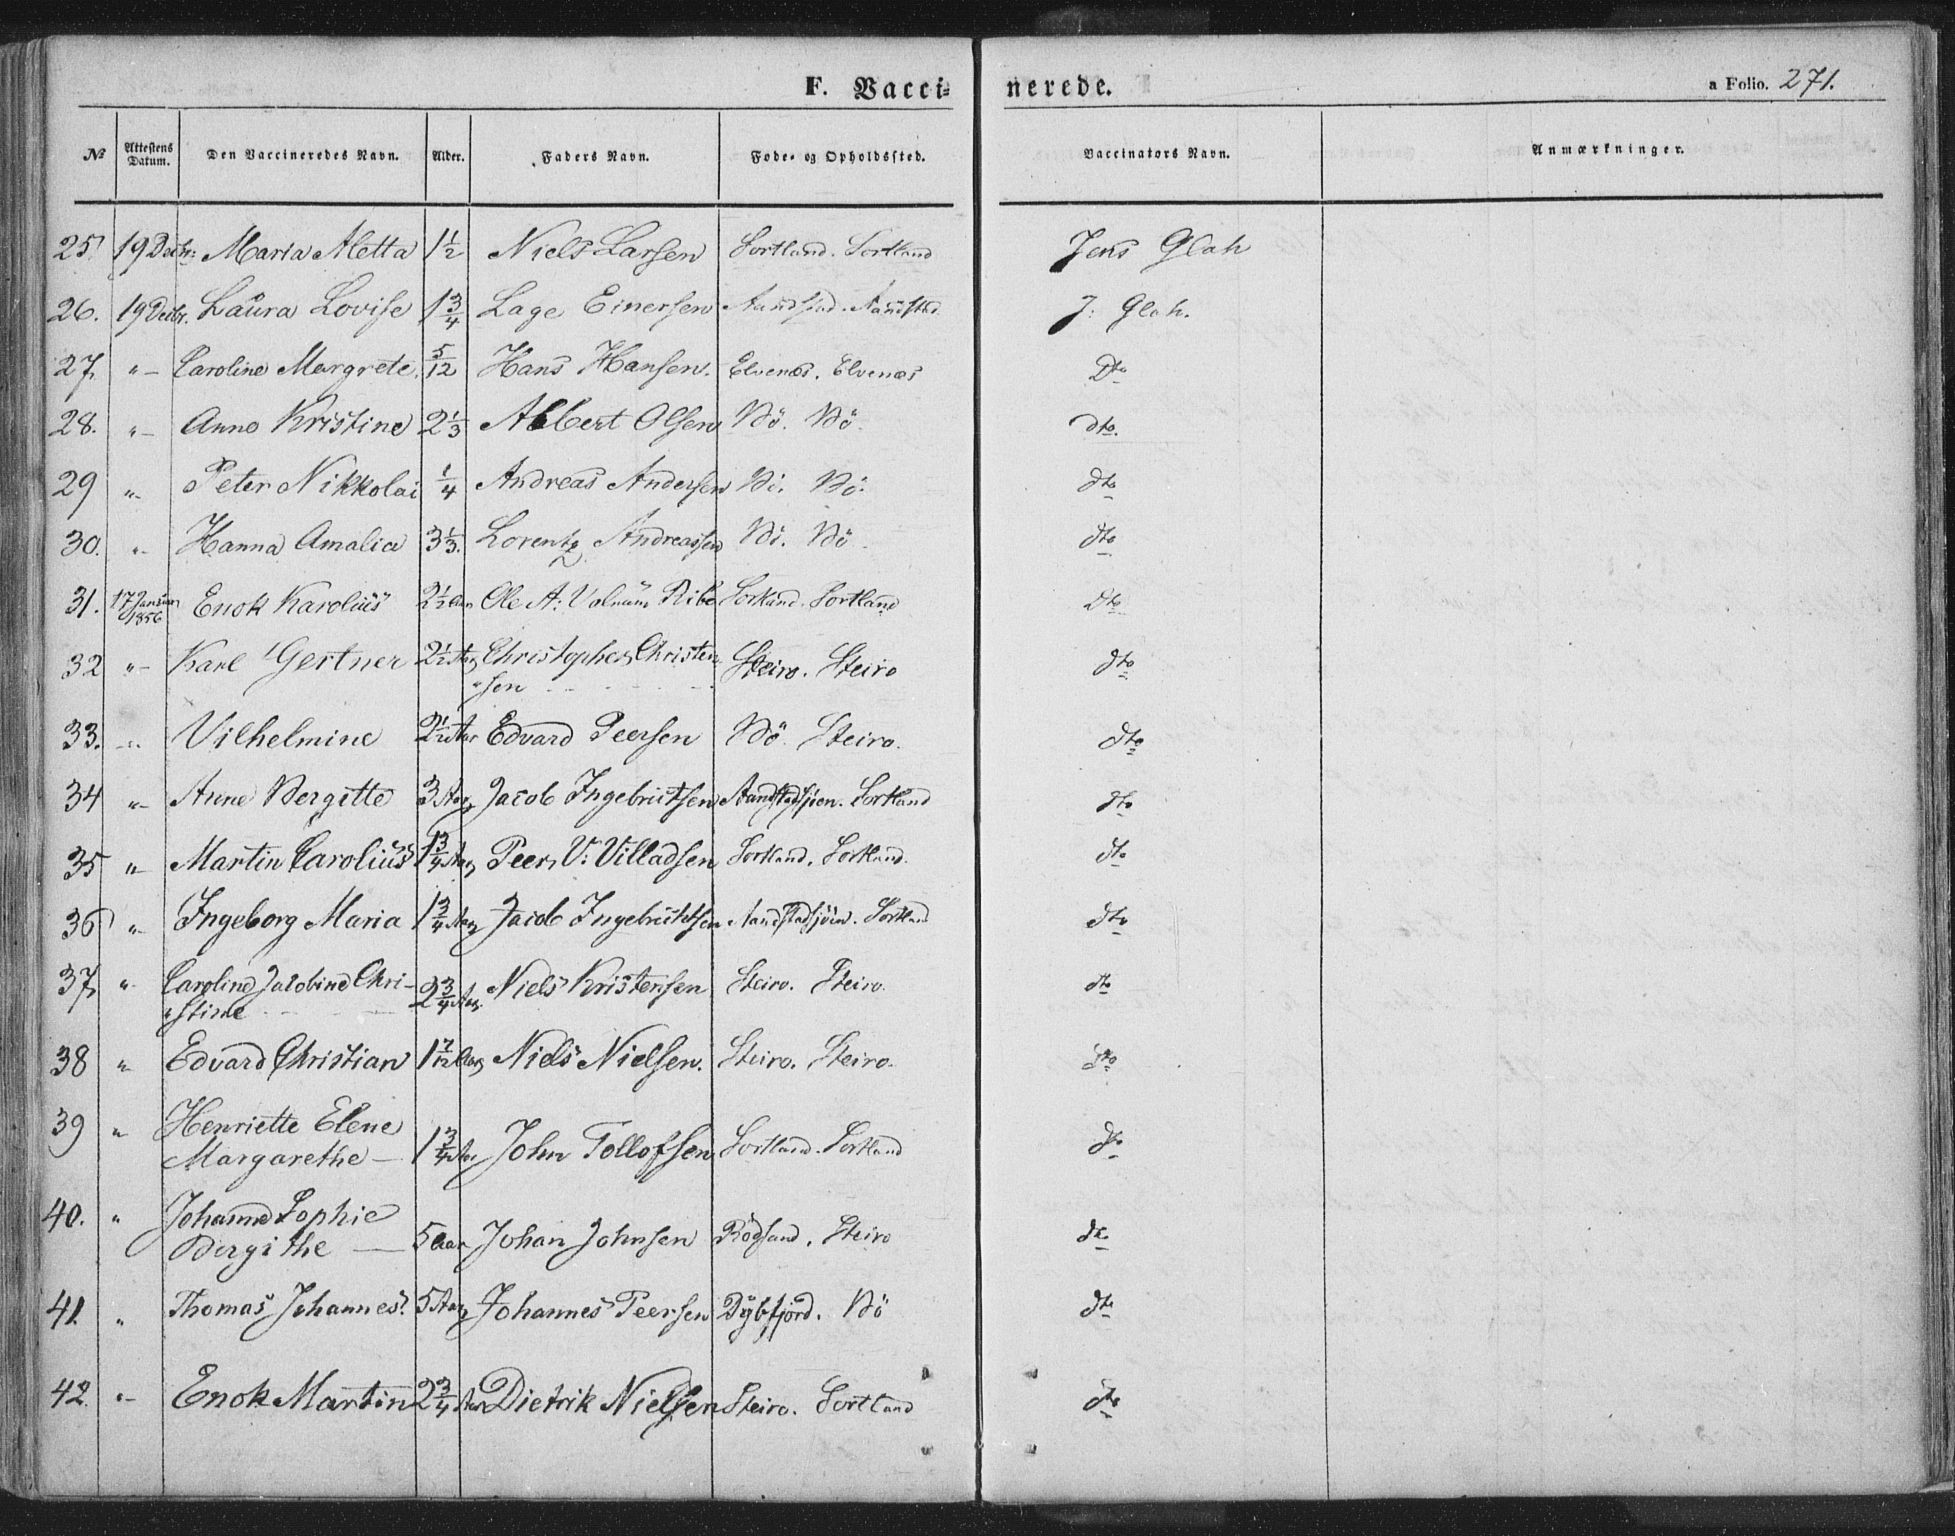 F. Vacci- nerede. a Folio. 271.
No Attestens Datum. Den Vaccineredes Navn. Alder. Faders Navn. Føde- og Opholdssted. Vaccinators Navn. Anmærkninger.
25 19 Decbr: Maria Aletta 1 1/2 Niels Larsen Sortland. Sortland Jens Glah
26. 19 Decbr. Laura Lovise 1 3/4 Lage Einersen Aandstad. Aandstad J: Glah.
27, "- Caroline Margrete. 5/12 Hans Hansen. Elvenæs. Elvenæs Dto
28. "- Anne Kristine 2 1/3 Albert Olsen Bö. Bö. dto.
29 "- Peter Nikkolai 1/4 Andreas Andersen Bö. Bö. dto
30. "- Hanna Amalia 3 1/3. Lorentz Andreassen Bö. Bö dto
31. 17 Januar 1856 Enok Karolius 2 1/2 Aar Ole A: Volqum Ribe Sortland. Sortland Dto
32 "- Karl Gertner 2 1/2 Aar Christopher Christen
"sen Steiro. Steiro dto
33. "- Vilhelmine 2 1/2 Aar Edvard Peersen Bö. Steiro. dto
34 "- Anne Bergitte 3 Aar Jacob Ingebrictsen Aandstadsjöen. Sortland dto
35 "- Martin Carolius 1 3/4 Aar Peer V: Villadsen Sortland. Sortland. dto
36 "- Ingeborg Maria 1 3/4 Aar Jacob Ingebrichtsen Aandstadsjöen. Sortland dto
37, "- Caroline Jacobine Chri-
"stine 2 3/4 Aar. Niels Kristensen Steiro. Steiro. dto
38 "- Edvard Christian 1 7/12 Aar Niels Nielsen. Steiro. Steiro. dto
39 "- Henriette Elene
Margarethe — 1 3/4 Aar John Tollofsen Sortland. Sortland dto
40. " Johanne Sophie
Bergithe — 5 Aar Johan Johnsen Rödsand. Steiro dto
41. " Thomas Johannes. 5 Aar Johannes Peersen Dybfjord. Bö dto
42. "- Enok Martin 2 3/4 Aar Dietrik Nielsen Steiro. Sortland dto